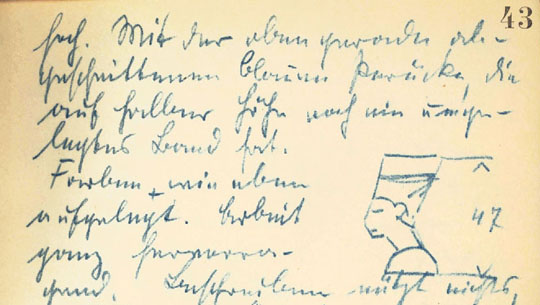 43
hoch. Mit der oben gerade ab-
geschnittenen blauen Perücke, die
auf halber Höhe noch ein umge-
legtes Band hat.
Farben wie oben
aufgelegt. Arbeit
47
ganz hervorra-
gend. Beschreiben nützt nichts,